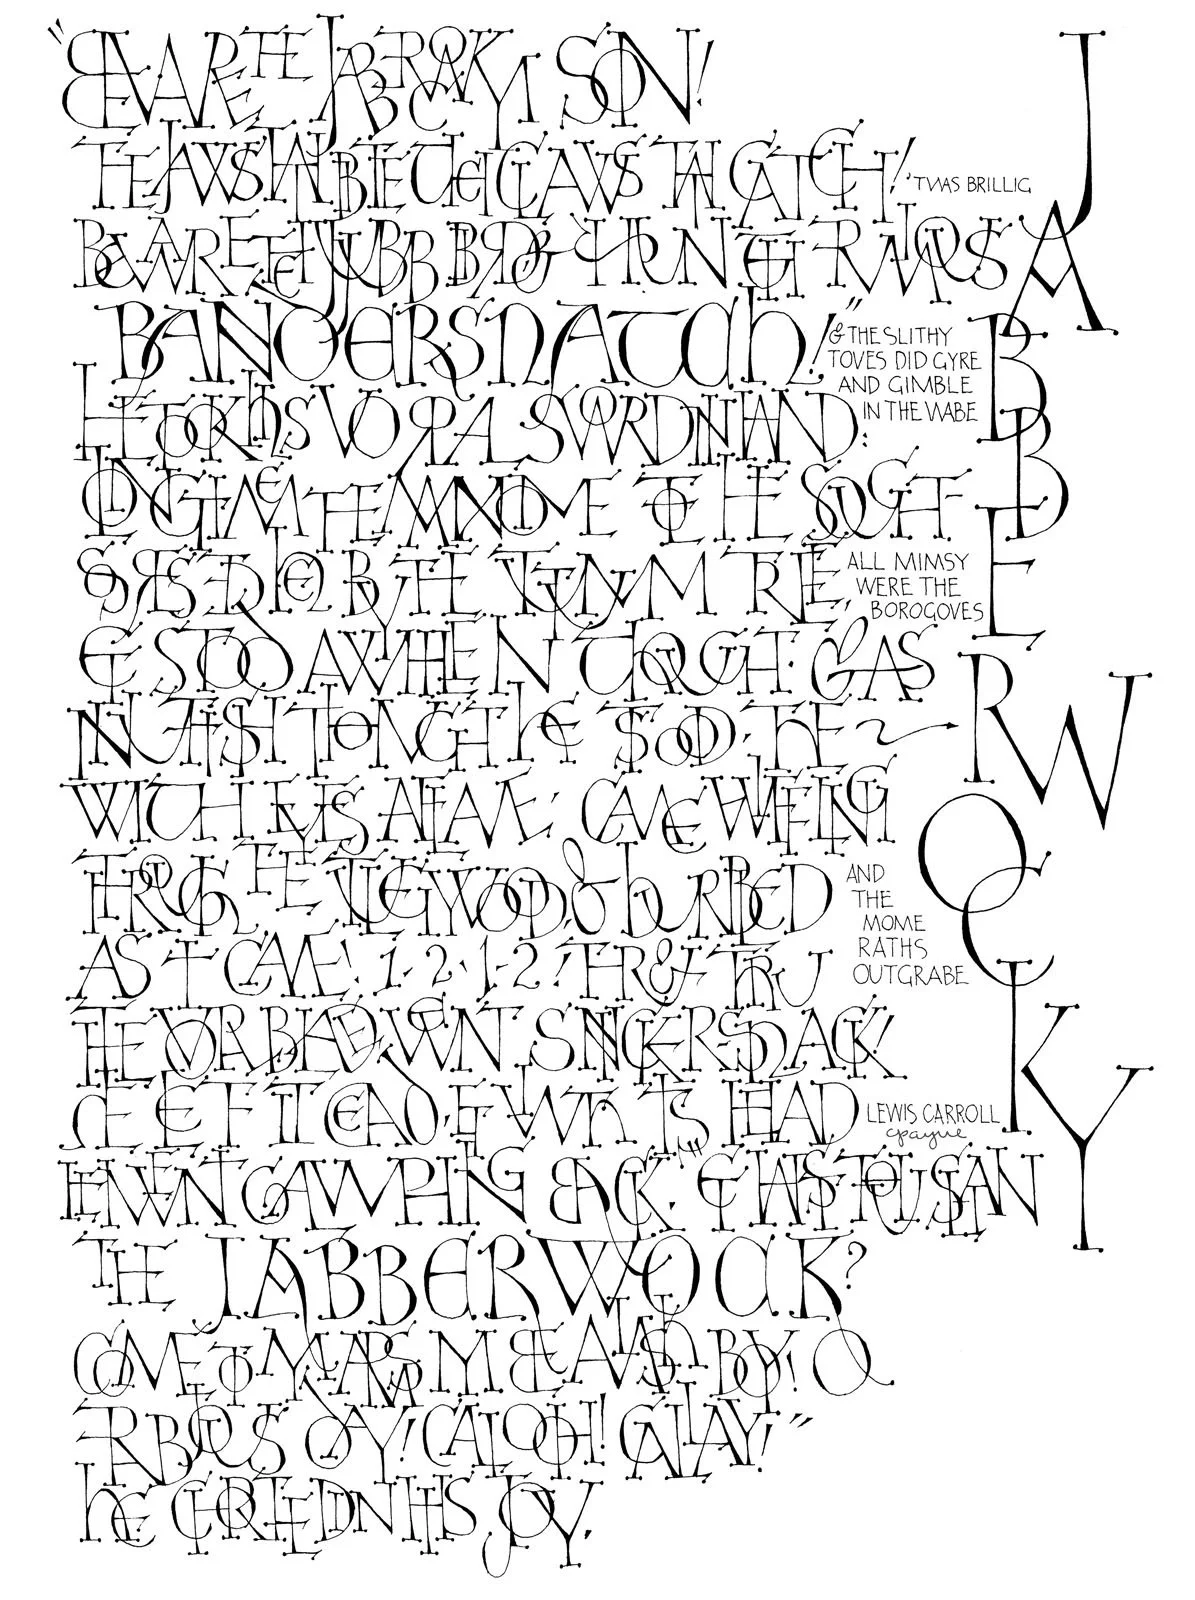 "BEWARE THE JABBERWOCK MY SON!
THE JAWS THAT BITE THE CLAWS THAT CATCH!
BEWARE THE JUBJUB BIRD & SHUN THE FRUMIOUS
BANDERSNATCH!"
HE TOOK HIS VORPAL SWORD IN HAND:
LONG TIME THE MANXOME FOE HE SOUGHT
SO RESTED HE BY THE TUMTUM TREE,
& STOOD AWHILE IN THOUGHT. & AS
IN UFFISH THOUGHT HE STOOD, THE
JABBERWOCKY
WITH EYES AFLAME, CAME WHIFFLING
THROUGH THE TULGEY WOOD, & BURBLED
AS IT CAME! 1-2! 1-2! THRU & THRU
THE VORPAL BLADE WENT SNICKER-SNACK!
HE LEFT IT DEAD, & WITH ITS HEAD
HE WENT GALUMPHING BACK. "& HAST THOU SLAIN
THE JABBERWOCK?
COME TO MY ARMS MY BEAMISH BOY! O
FRABJOUS DAY! CALLOOH! CALLAY!"
HE CHORTLED IN HIS JOY.
'TWAS BRILLIG
& THE SLITHY
TOVES DID GYRE
AND GIMBLE
IN THE WABE
ALL MIMSY
WERE THE
BOROGOVES
AND
THE
MOME
RATHS
OUTGRABE
LEWIS CARROLL
cpayne